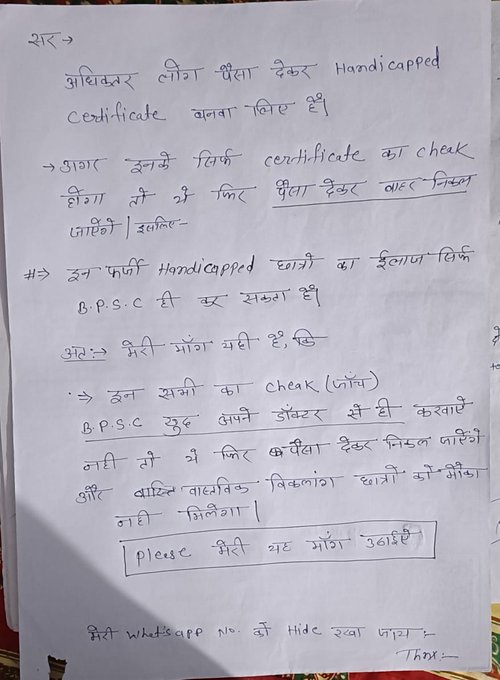 सर →
अधिकतर लोग पैसा देकर Handicapped
certificate बनवा लिए है।
→ अगर इनके सिर्फ certificate का cheak
होगा तो ये फिर पैसा देकर बाहर निकल
जाएँगे। इसलिए -
#⇒ इन फर्जी Handicapped छात्रों का ईलाज सिर्फ
B.P.S.C ही कर सकता है।
अतः → मेरी माँग यही है, कि
⇒ इन सभी का cheak (जाँच)
B.P.S.C खुद अपने डॉक्टर से ही करवाऐं
नही तो ये फिर पैसा देकर निकल जाएँगे
और वास्तविक विकलांग छात्रों को मौका
नही मिलेगा।
please मेरी यह माँग उठाईऐ
मेरी What's app No. को Hide रखा जाय :-
Thnx :-